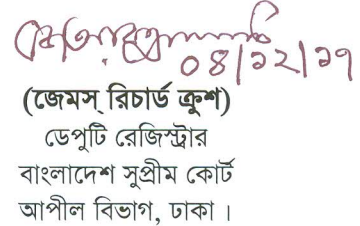 ০৪/১২/১৭
(জেমস্ রিচার্ড ক্রুশ)
ডেপুটি রেজিস্ট্রার
বাংলাদেশ সুপ্রীম কোর্ট
আপীল বিভাগ, ঢাকা।